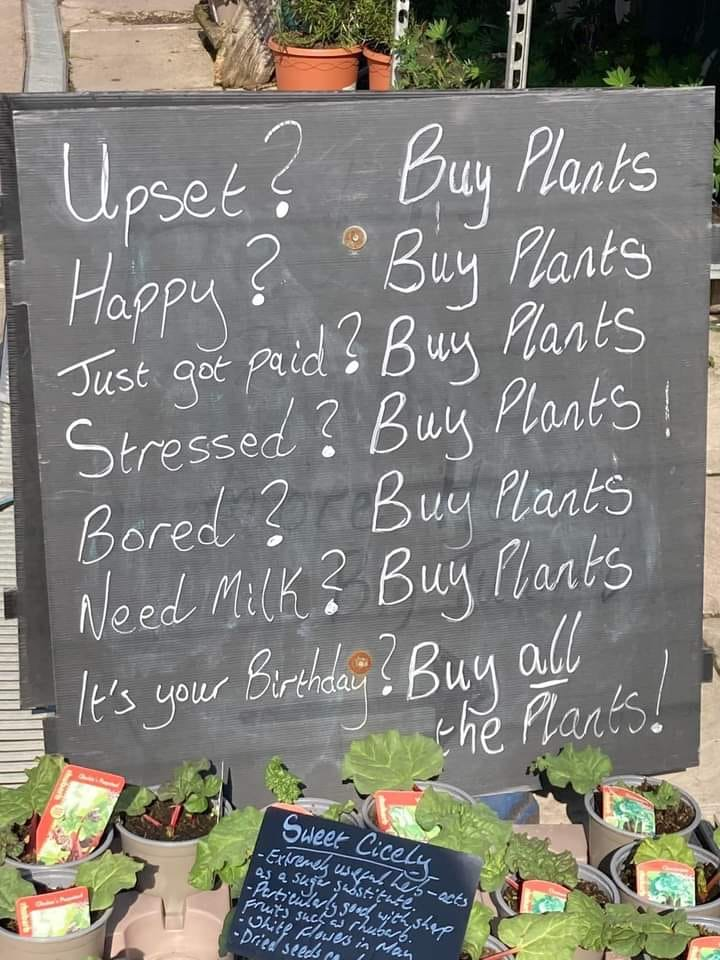 Upset? Buy Plants
Happy? Buy Plants
Just got paid? Buy Plants
Stressed? Buy Plants!
Bored? Buy Plants
Need Milk? Buy Plants
It's your Birthday? Buy all
the Plants!
Sweet Cicely
- Extremely useful herb - acts
as a sugar substitute
- Particularly good with sharp
fruits such as rhubarb.
- White flowers in May
- Dried seeds